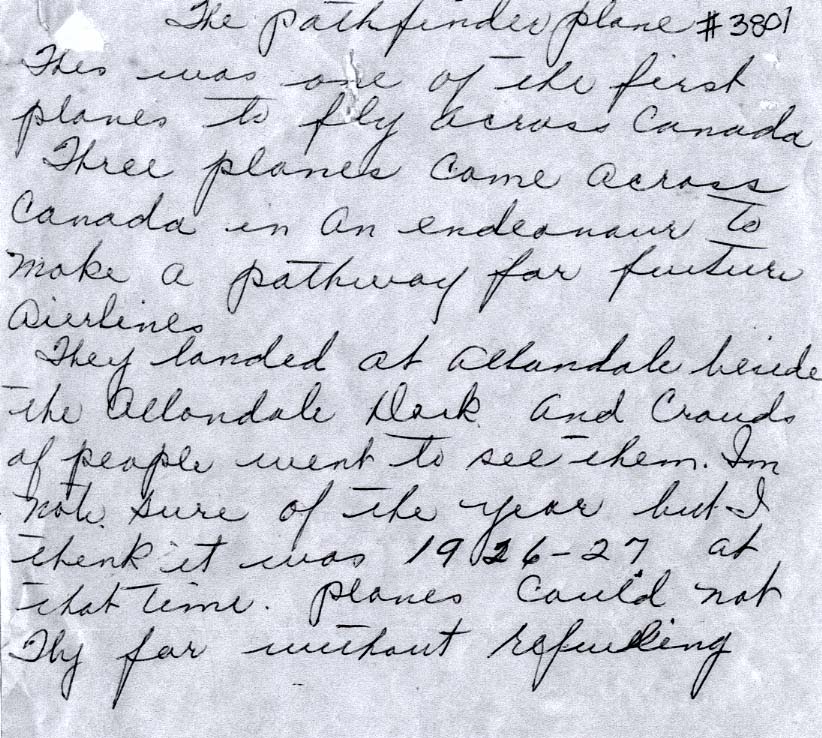 The pathfinder plane #3801
This was one of the first
planes to fly across Canada
Three planes come across
Canada in an endeavour to
make a pathway for future
Airlines
They landed at Allandale beside
the Allandale Dock and Crowds
of people went to see them. Im
not sure of the year but I
think it was 1926-27 at
that time. planes could not
fly far without refueling